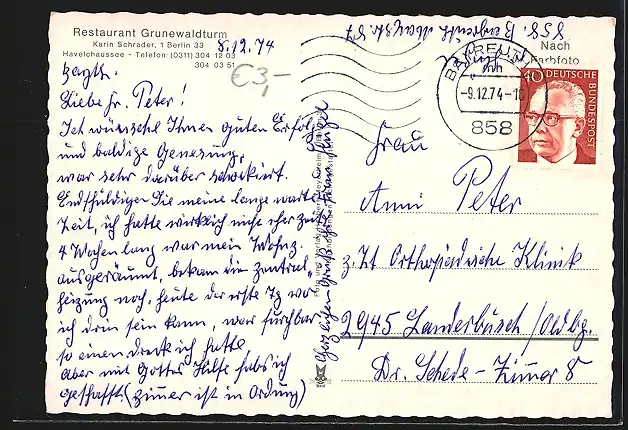 Restaurant Grunewaldturm
Karin Schrader, 1 Berlin 33
Havelchaussee - Telefon: (0311) 304 12 03
304 03 51
8.12.74
€3,-
Liebe Fr. Peter!
Ich wünsche Ihnen guten Erfolg
und baldige Genesung,
war sehr darüber schockiert.
Entschuldigen Sie meine lange warte
Zeit, ich hatte wirklich nicht eher zeit
4 Wochen lang war mein Wohnz.
ausgeräumt, bekam die Zentral-
heizung noch. heute der erste Tg wo
ich drin sein kann, war furchbar
so einen dreck ich hatte
aber mit Gottes Hilfe habs ich
geschafft. (Zimmer ist in Ordnung)
Herzlichen Gruß
858. Bayreuth
Nach
Farbfoto
BAYREUTH
-9.12.74-
858
40 DEUTSCHE
BUNDESPOST
Frau
Anni Peter
z.Zt Orthopädische Klinik
2945 Sanderbusch / Oldbg.
Dr. Schede-Zimmer 8